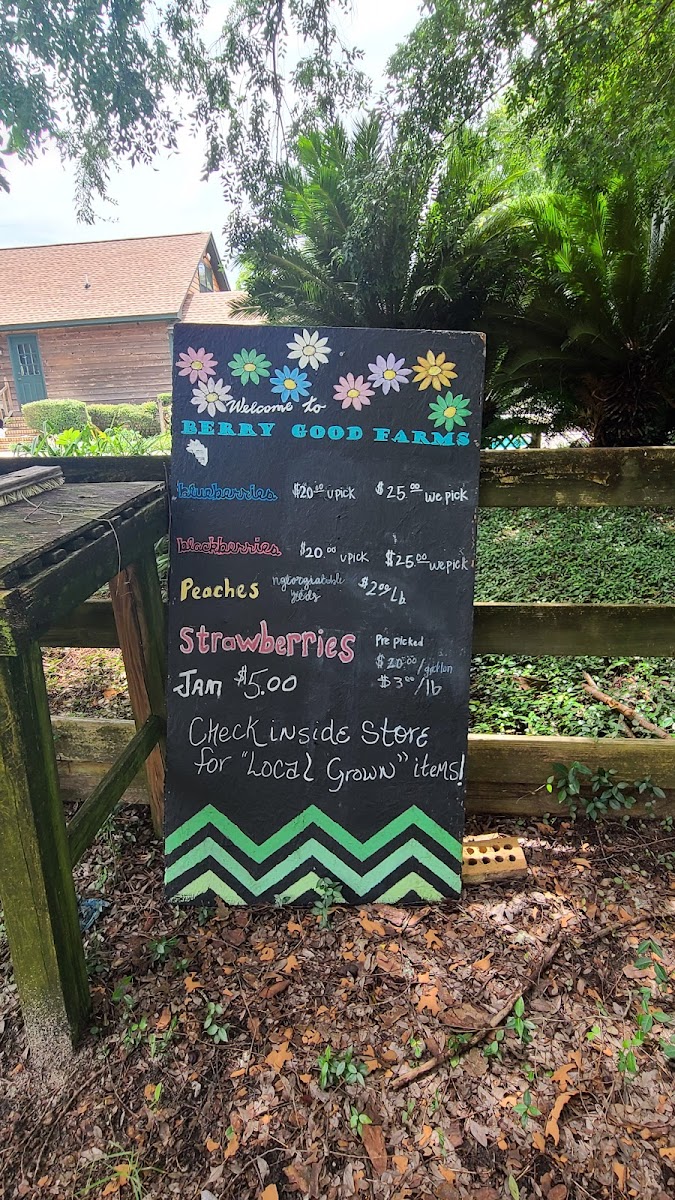 Welcome to
BERRY GOOD FARMS
blueberries $20.00 u pick $25.00 we pick
blackberries $20.00 u pick $25.00 we pick
Peaches $2.00/lb
Strawberries Pre picked
$20.00/gallon
JAM $5.00 $3.00/lb
Check inside Store
for "Local Grown" items!